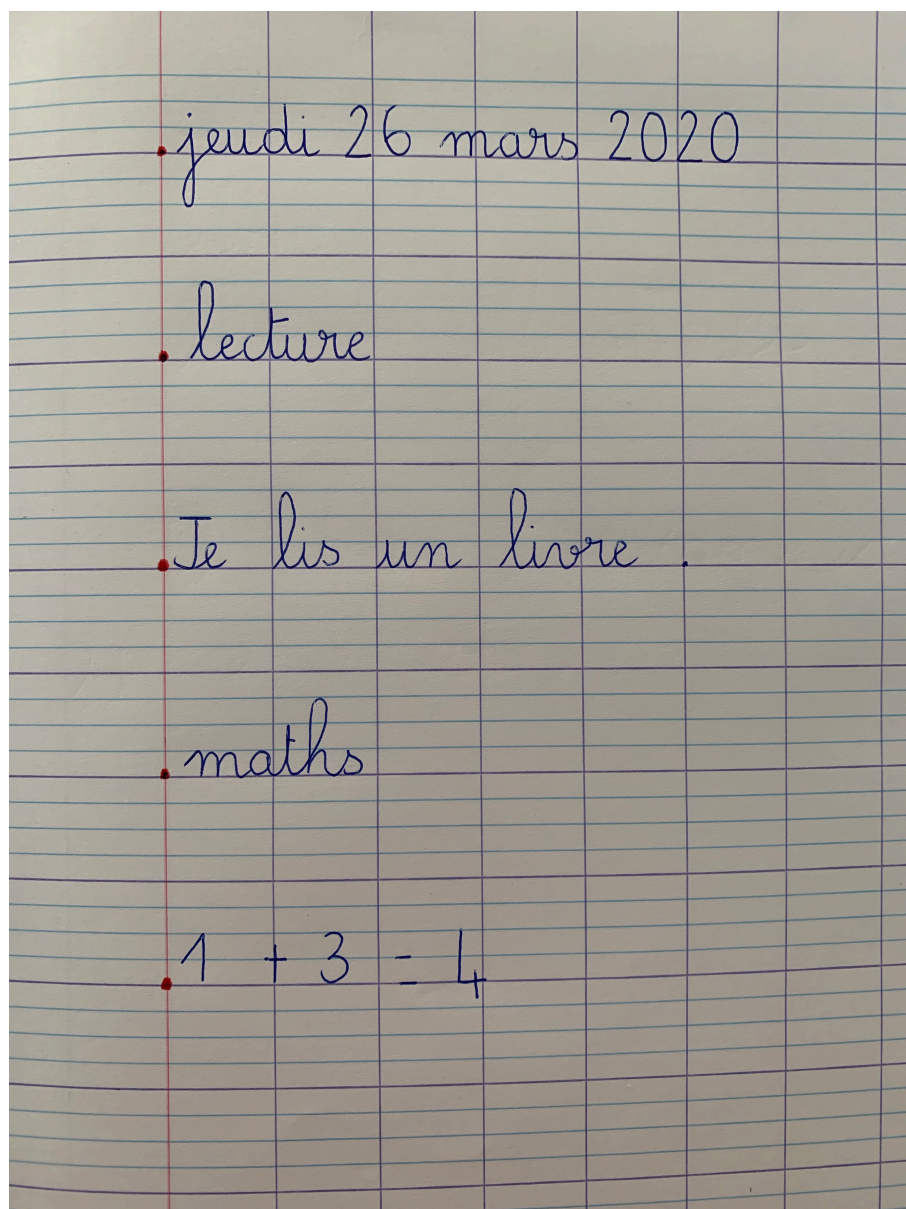 jeudi 26 mars 2020
lecture
Je lis un livre .
maths
1 + 3 = 4